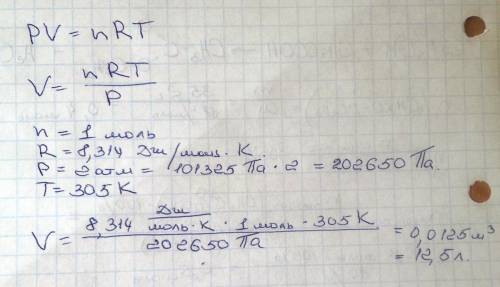 PV = nRT
V = nRT / P
n = 1 моль
R = 8,314 Дж/моль·К
P = 2 атм = 101325 Па · 2 = 202650 Па.
T = 305 K
V = 8,314 Дж/моль·К · 1 моль · 305 К / 202650 Па = 0,0125 м³
= 12,5 л.